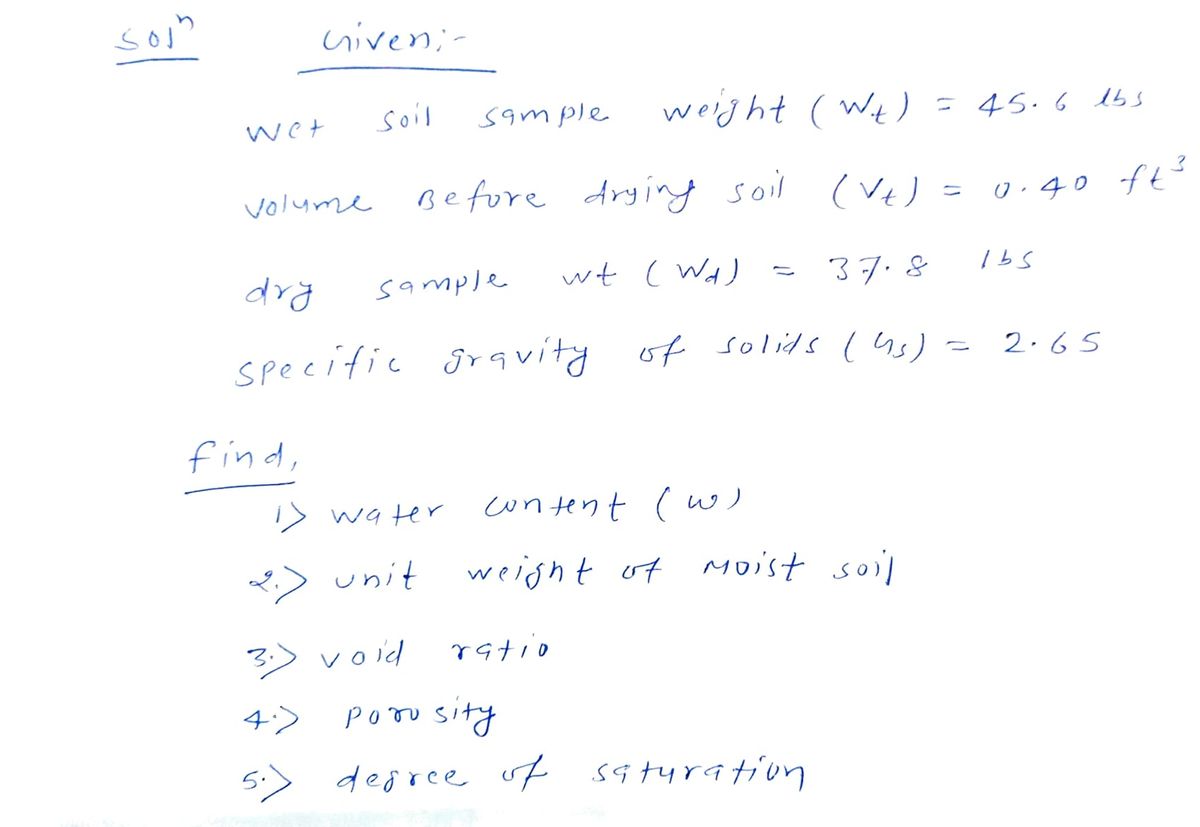 Solⁿ Given:-
Wet soil sample weight (Wt) = 45.6 lbs
Volume Before drying soil (Vt) = 0.40 ft³
dry sample wt (Wd) = 37.8 lbs
specific gravity of solids (Gs) = 2.65
find,
1> water content (w)
2.> unit weight of Moist soil
3.> void ratio
4.> porosity
5.> degree of saturation